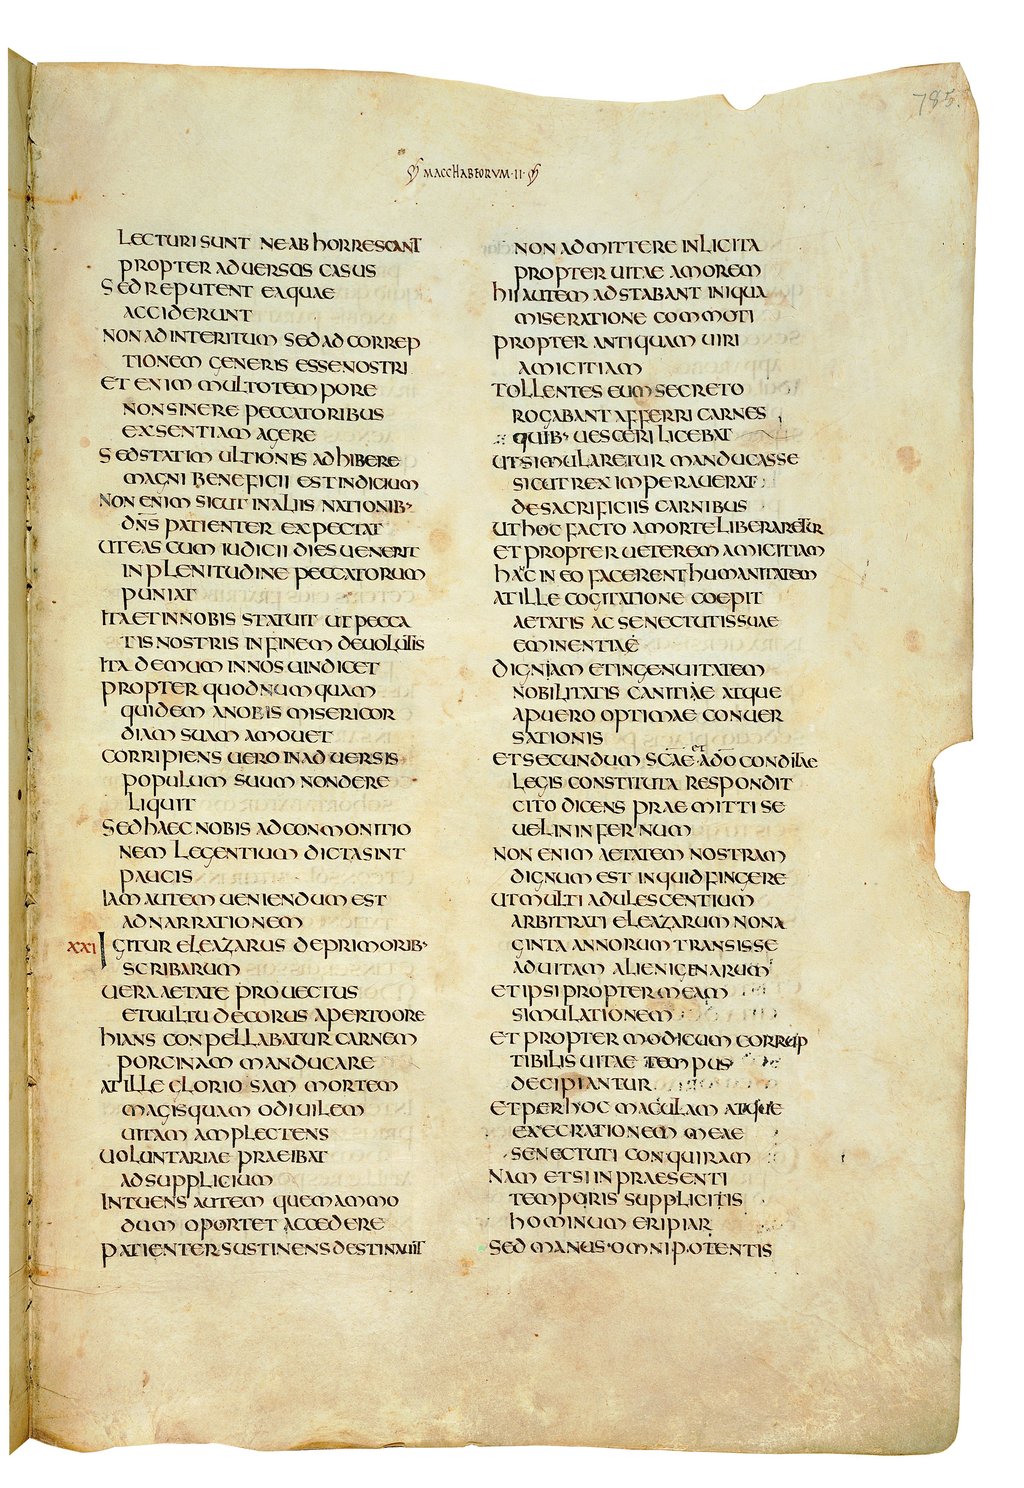 785.
MACCHABEORVM·II·
LECTURI SUNT NE ABHORRESCANT
PROPTER ADUERSOS CASUS
SED REPUTENT EA QUAE
ACCIDERUNT
NON AD INTERITUM SED AD CORREP
TIONEM GENERIS ESSE NOSTRI
ET ENIM MULTO TEMPORE
NON SINERE PECCATORIBUS
EX SENTIAM AGERE
SED STATIM ULTIONIS ADHIBERE
MAGNI BENEFICII EST INDICIUM
NON ENIM SICUT IN ALIIS NATIONIB·
DN̅S PATIENTER EXPECTAT
UT EAS CUM IUDICII DIES UENERIT
IN PLENITUDINE PECCATORUM
PUNIAT
ITA ET IN NOBIS STATUIT UT PECCA
TIS NOSTRIS IN FINEM DEUOLUTIS
ITA DEMUM IN NOS UINDICET
PROPTER QUOD NUMQUAM
QUIDEM A NOBIS MISERICOR
DIAM SUAM AMOUET
CORRIPIENS UERO IN ADUERSIS
POPULUM SUUM NON DERE
LIQUIT
SED HAEC NOBIS AD CONMONITIO
NEM LEGENTIUM DICTA SINT
PAUCIS
IAM AUTEM UENIENDUM EST
AD NARRATIONEM
XXI IGITUR ELEAZARUS DE PRIMORIB·
SCRIBARUM
UIR AETATE PROUECTUS
ET UULTU DECORUS APERTO ORE
HIANS CONPELLABATUR CARNEM
PORCINAM MANDUCARE
AT ILLE GLORIOSAM MORTEM
MAGIS QUAM ODIUILEM
UITAM AMPLECTENS
UOLUNTARIAE PRAEIBAT
AD SUPPLICIUM
INTUENS AUTEM QUEMAMMO
DUM OPORTET ACCEDERE
PATIENTER SUSTINENS DESTINAUIT
NON ADMITTERE INLICITA
PROPTER UITAE AMOREM
HII AUTEM AD STABANT INIQUA
MISERATIONE COMMOTI
PROPTER ANTIQUAM UIRI
AMICITIAM
TOLLENTES EUM SECRETO
ROGABANT AFFERRI CARNES
QUIB· UESCERI LICEBAT
UT SIMULARETUR MANDUCASSE
SICUT REX IMPERAUERAT
DE SACRIFICIIS CARNIBUS
UT HOC FACTO A MORTE LIBERARETUR
ET PROPTER UETEREM AMICITIAM
HAC IN EO FACERENT HUMANITATEM
AT ILLE COGITATIONE COEPIT
AETATIS AC SENECTUTIS SUAE
EMINENTIAE
DIGNIAM ET INGENUITATEM
NOBILITATIS CANITIAE ATQUE
A PUERO OPTIMAE CONUER
SATIONIS
ET SECUNDUM SC̅AE ET A DO̅ CONDITAE
LEGIS CONSTITUTA RESPONDIT
CITO DICENS PRAEMITTI SE
UELIN INFERNUM
NON ENIM AETATEM NOSTRAM
DIGNUM EST INQUID FINGERE
UT MULTI ADULESCENTIUM
ARBITRATI ELEAZARUM NONA
GINTA ANNORUM TRANSISSE
AD UITAM ALIENIGENARUM
ET IPSI PROPTER MEAM
SIMULATIONEM
ET PROPTER MODICUM CORRUP
TIBILIS UITAE TEMPUS
DECIPIANTUR
ET PER HOC MACULAM ATQUE
EXECRATIONEM MEAE
SENECTUTI CONQUIRAM
NAM ETSI IN PRAESENTI
TEMPORIS SUPPLICIIS
HOMINUM ERIPIAR
SED MANUS OMNIPOTENTIS